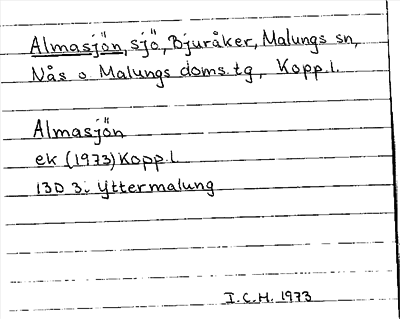 Almasjön, sjö, Bjuråker, Malungs sn,
Nås o Malungs doms. tg, Kopp. l.
Almasjön
ek (1973) Kopp. l
13D 3i Yttermalung
I.C.H. 1973